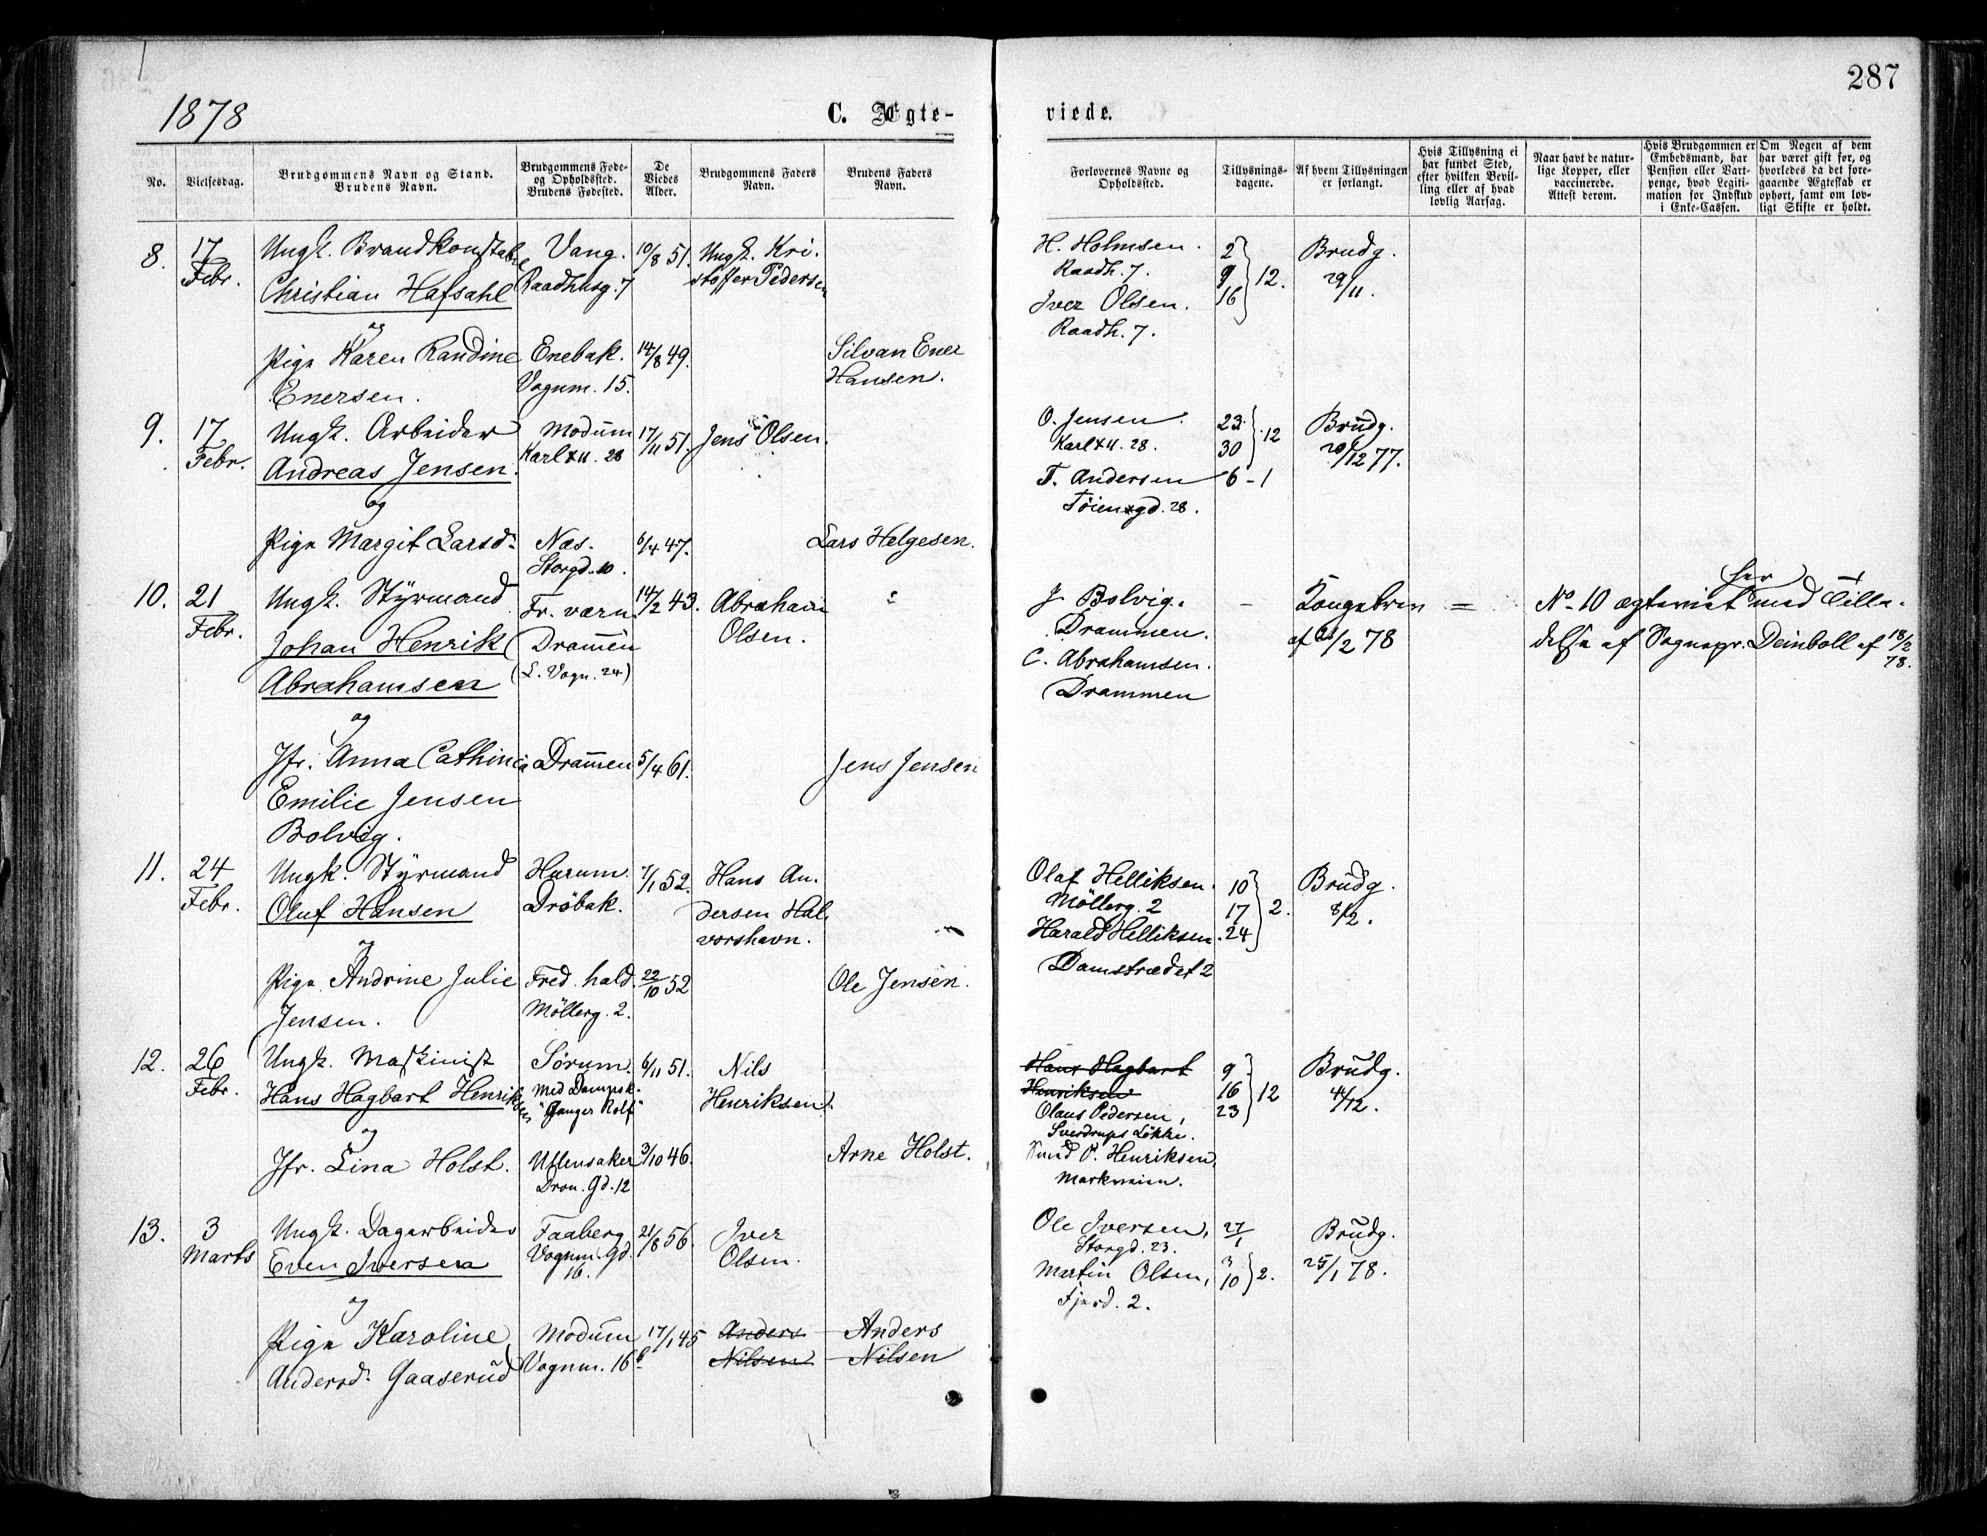 287
1878
C. Ægte-
viede.
No.
Vielsesdag.
Brudgommens Navn og Stand.
Brudens Navn.
Brudgommens Føde-
og Opholdssted.
Brudens Fødested.
De
Viedes
Alder.
Brudgommens Faders
Navn.
Brudens Faders
Navn.
Forlovernes Navne og
Opholdssted.
Tillysnings-
dagene.
Af hvem Tillysningen
er forlangt.
Hvis Tillysning ei
har fundet Sted,
efter hvilken Bevil-
ling eller af hvad
lovlig Aarsag.
Naar havt de natur-
lige Kopper, eller
vaccinerede.
Attest derom.
Hvis Brudgommen er
Embedsmand, har
Pension eller Vart-
penge, hvad Legiti-
mation for Indskud
i Enke-Cassen.
Om Nogen af dem
har været gift før, og
hvorledes da det fore-
gaaende Ægteskab er
ophørt, samt om lov-
ligt Skifte er holdt.
8.
17
Febr.
Ungk. Brandkonstabe
Christian Hafsahl
og
Pige Karen Randine
Enersen.
Vang.
Raadhusg. 7
Enebak.
Vognm. 15.
10/8 51.
14/8 49.
Ungk. Kri-
stoffer Pedersen
Silvan Ener
Hansen.
H. Holmsen.
Raadh. 7.
Iver Olsen.
Raadh. 7.
2
9
16
12.
Brudg.
29/11.
9.
17
Febr.
Ungk. Arbeider
Andreas Jensen.
og
Pige Margit Larsd.
Modum
Karl XII. 28
Næs.
Storgd. 10.
17/11 51.
6/4 47.
Jens Olsen.
Lars Helgesen.
O. Jensen.
Karl XII. 28.
T. Andersen
Tøiengd. 28.
23
30
12
6 - 1
Brudg.
20/12 77.
10.
21
Febr.
Ungk. Styrmand
Johan Henrik
Abrahamsen
og
Jfr. Anna Cathinca
Emilie Jensen
Bolvig.
Fr. værn.
Drammen
(L. Vogn. 24)
Drammen
14/2 43.
5/4 61.
Abraham
Olsen.
Jens Jensen
J. Bolvig.
Drammen.
C. Abrahamsen.
Drammen
-
Kongebrev
af /2 78
=
No. 10 ægteviet her med Tilla-
delse af Sognepr. Deinboll af 18/2
78.
11.
24
Febr.
Ungk. Styrmand
Oluf Hansen
og
Pige Andrine Julie
Jensen.
Hurum.
Drøbak.
Fred. hald.
Møllerg. 2.
7/1 52.
22/10 52
Hans An-
dersen Hal-
vorshavn.
Ole Jensen.
Olaf Helliksen.
Møllerg. 2
Harald Helliksen.
Damstrædet 2
10
17
24
2.
Brudg.
8/2.
12.
26
Febr.
Ungk. Maskinist
Hans Hagbart Henriksen
og
Jfr. Lina Holst.
Sørum.
Med Dampsk.
"Ganger Rolf"
Ullensaker
Dron. Gd. 12
6/11 51.
3/10 46.
Nils
Henriksen.
Arne Holst.
Hans Hagbart
Henriksen
Olaus Pedersen,
Sverdrups Løkke.
Knud P. Henriksen
Markveien.
9
16
23
12
Brudg.
4/12.
13.
3
Marts
Ungk. Dagarbeider
Even Iversen
og
Pige Karoline
Andersd. Gaaserud
Faaberg
Vognm. Gd.
16.
Modum
Vognm. 16 b
21/8 56.
17/1 45
Iver
Olsen.
Anders
Nilsen
Anders
Nilsen
Ole Iversen,
Storgd. 23.
Martin Olsen,
Fjerd. 2.
27/1
3
10
2.
Brudg.
25/1 78.